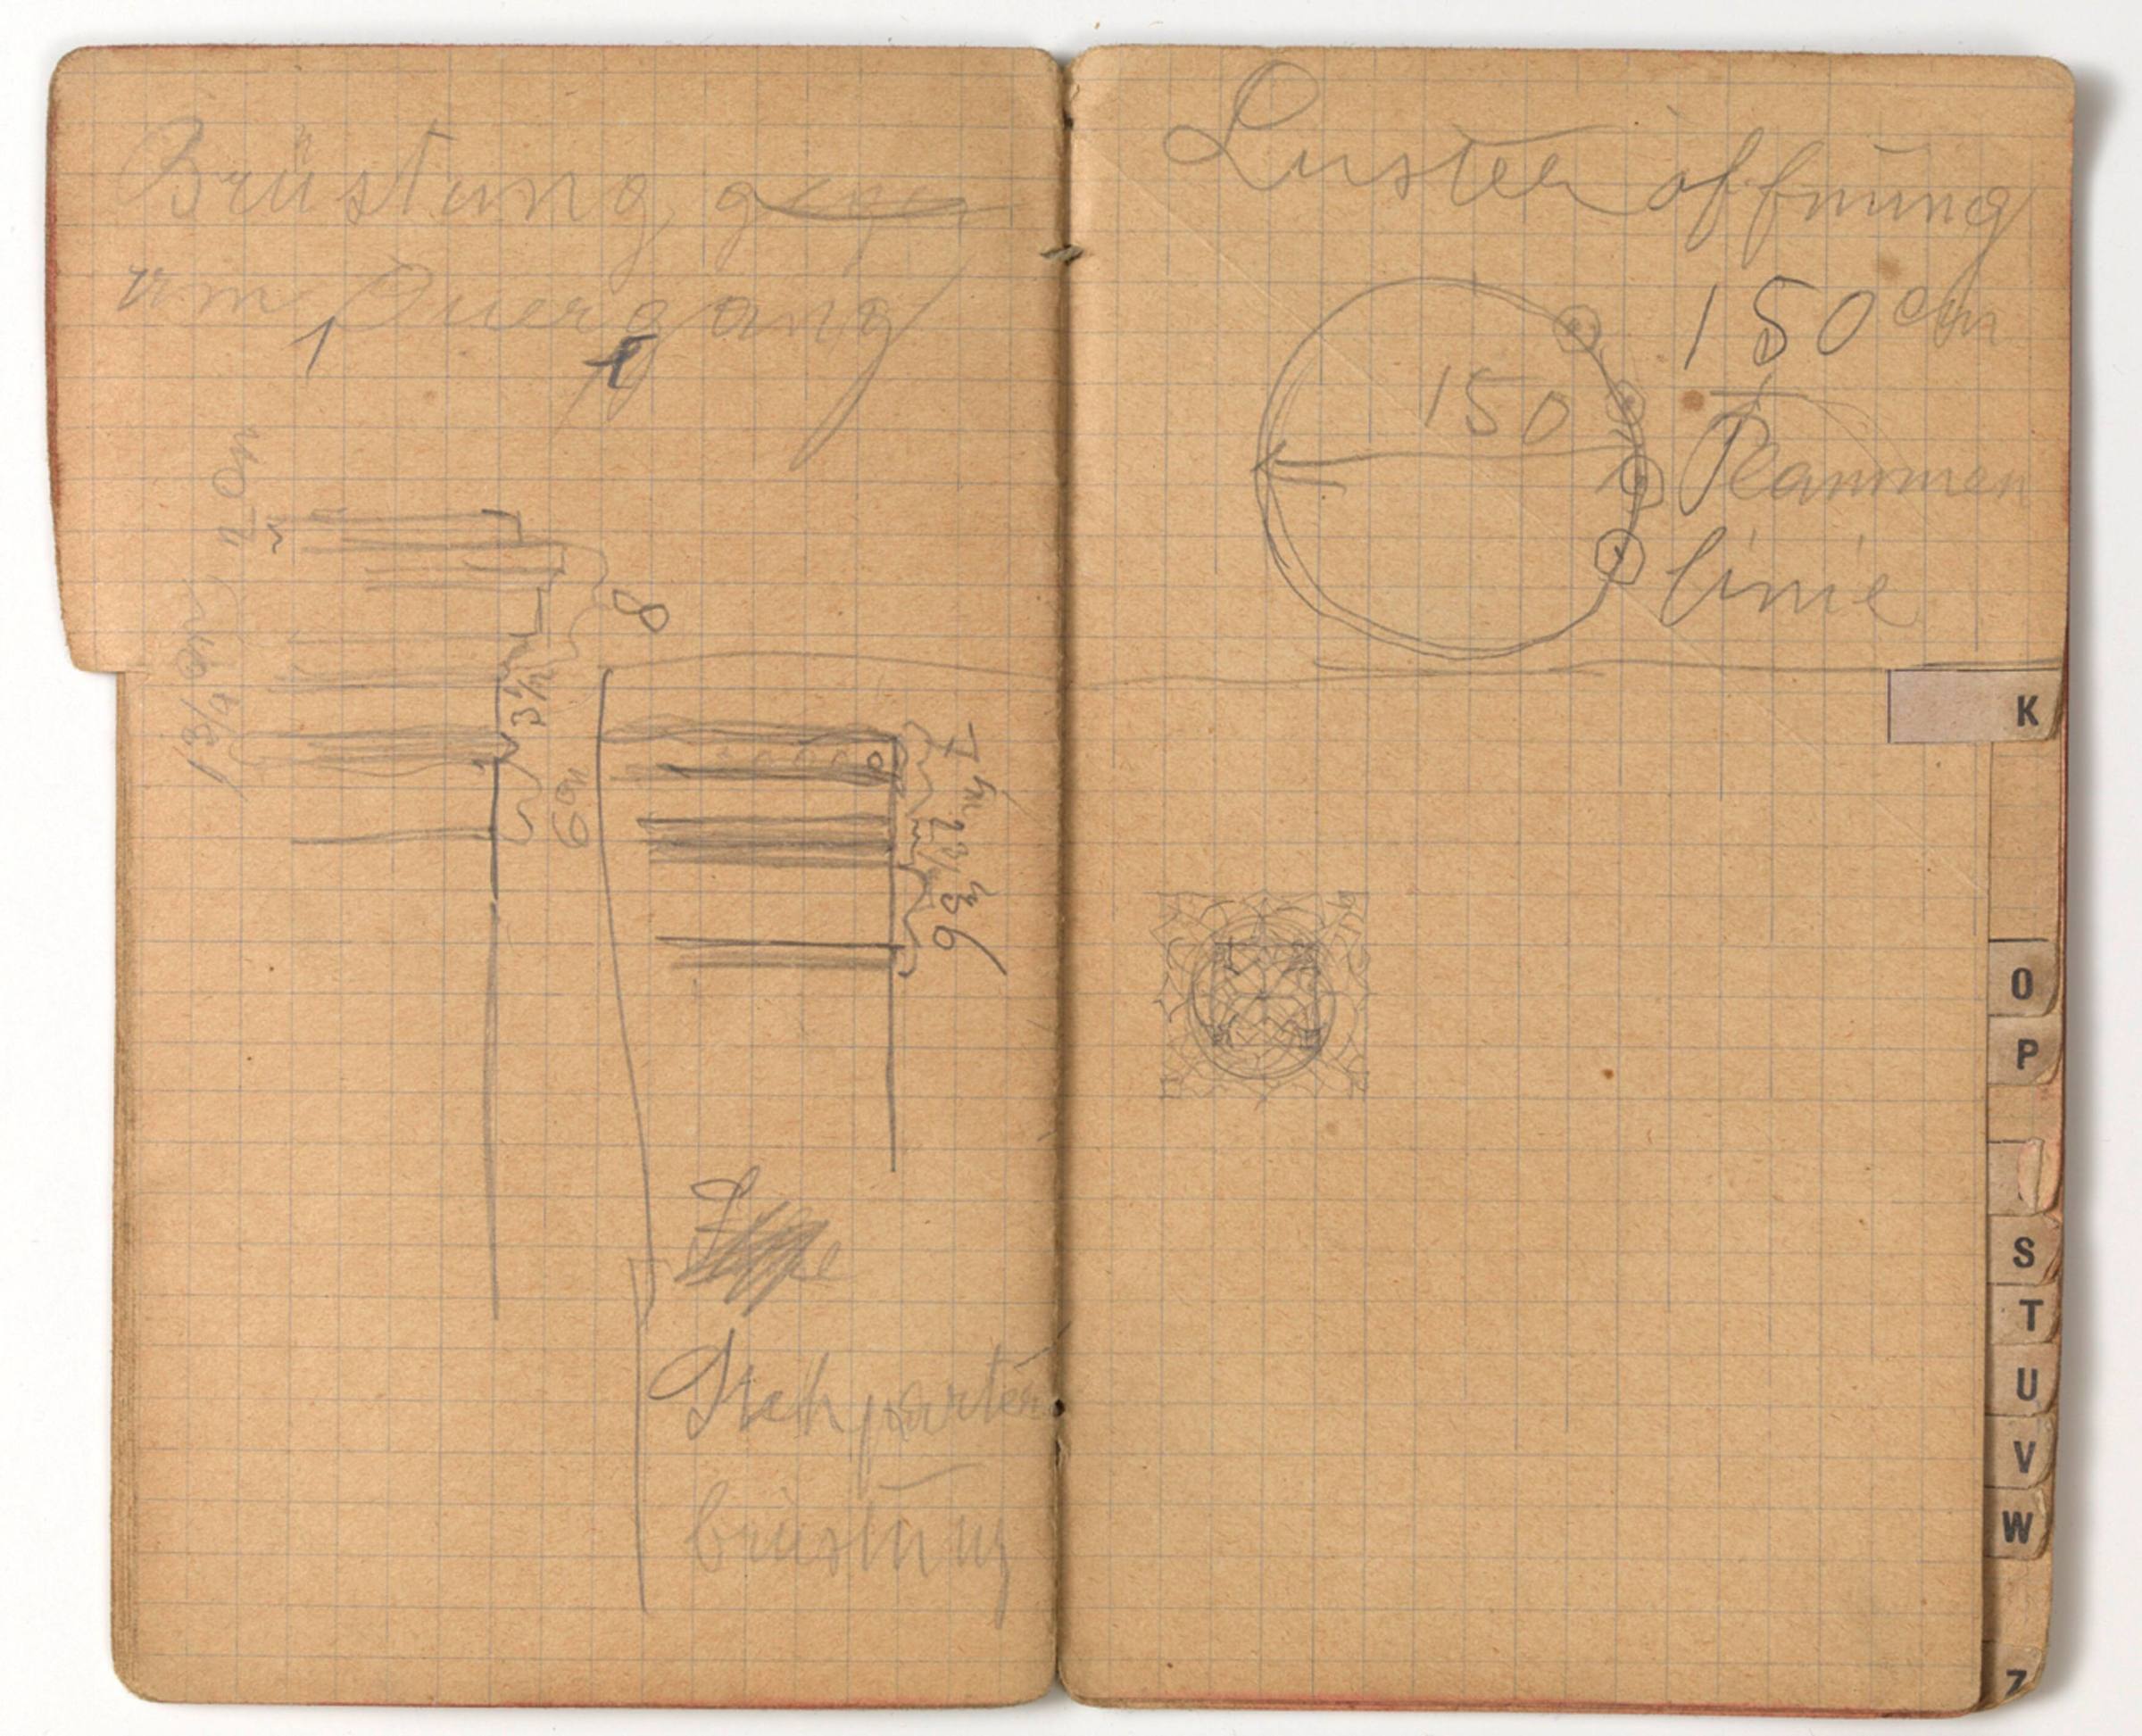 Brüstung gegen
um Quergang
2 cm
8
1 3/4 cm
3 1/2
6 cm
7
6
Stehparterre
brüstung
Luster öffnung
150 cm
150
Flammen
linie
K
O
P
S
T
U
V
W
Z